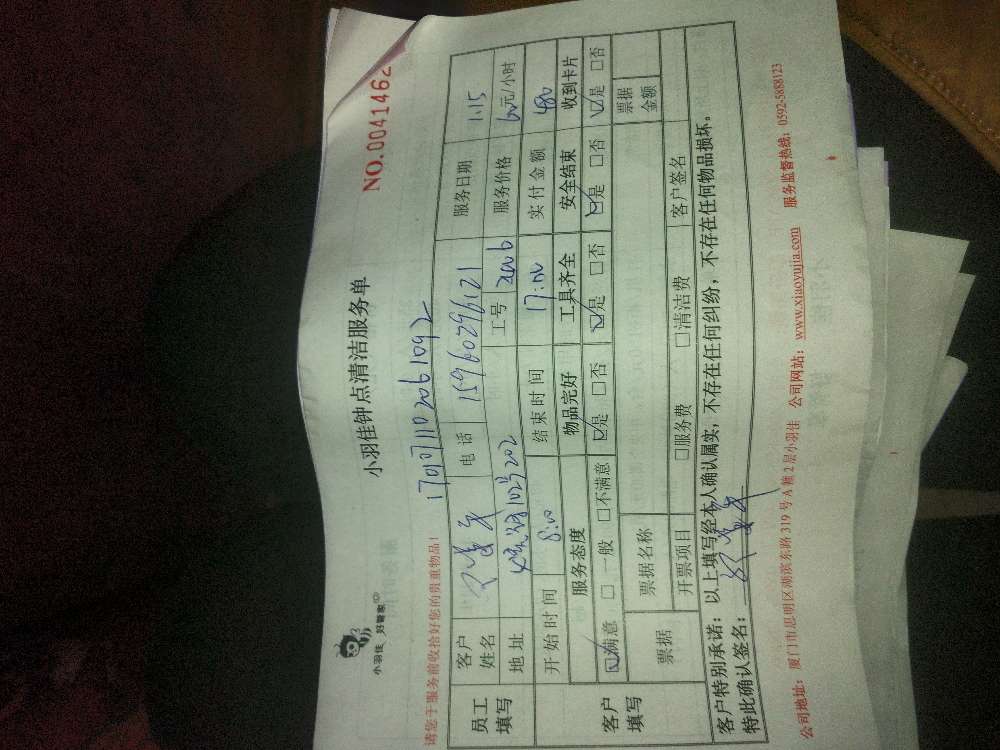 小羽佳 好管家
小羽佳钟点清洁服务单
NO.0041462
请您于服务前收拾好您的贵重物品!
员工填写
客户姓名 电话 15960296121 服务日期 1.15
地址 工号 服务价格 60元/小时
开始时间 8:00 结束时间 17:00 实付金额 480
客户填写
服务态度 物品完好 工具齐全 安全结束 收到卡片
☑满意 □一般 □不满意 ☑是 □否 ☑是 □否 ☑是 □否 ☑是 □否
票据 票据名称 票据金额
开票项目 □服务费 □清洁费 客户签名
客户特别承诺: 以上填写经本人确认属实,不存在任何纠纷,不存在任何物品损坏。
特此确认签名:
公司地址: 厦门市思明区湖滨东路319号A幢2层小羽佳 公司网站: www.xiaoyujia.com 服务监督热线: 0592-5888123